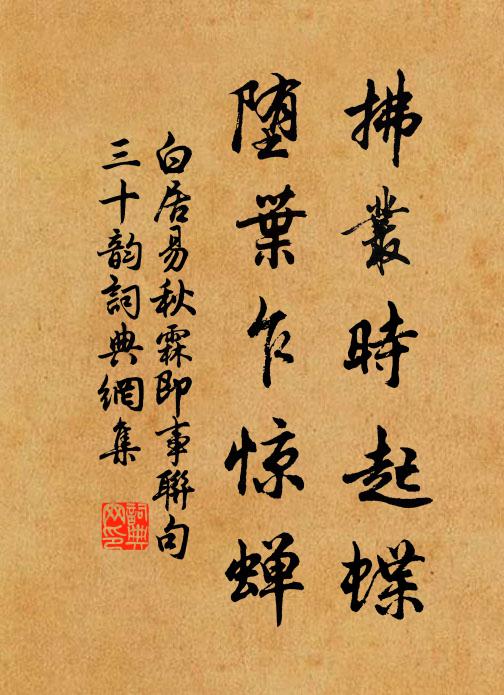 拂叢時起蝶
堕葉乍惊蝉
白居易秋霖即事聯句
三十韵詞典網集
詞典
网印